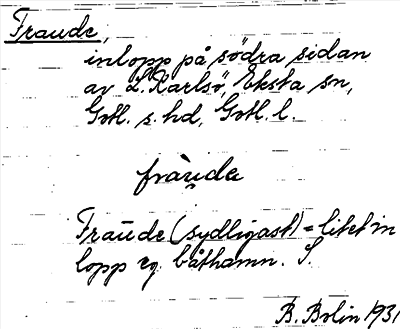 Fraude,
inlopp på södra sidan
av L. Karlsö, Eksta sn,
Gotl. s. hd, Gotl. l.
fràu̯da
Frau̅de (sydligast) = litet in
lopp eg. båthamn. S.
B. Bolin 1931